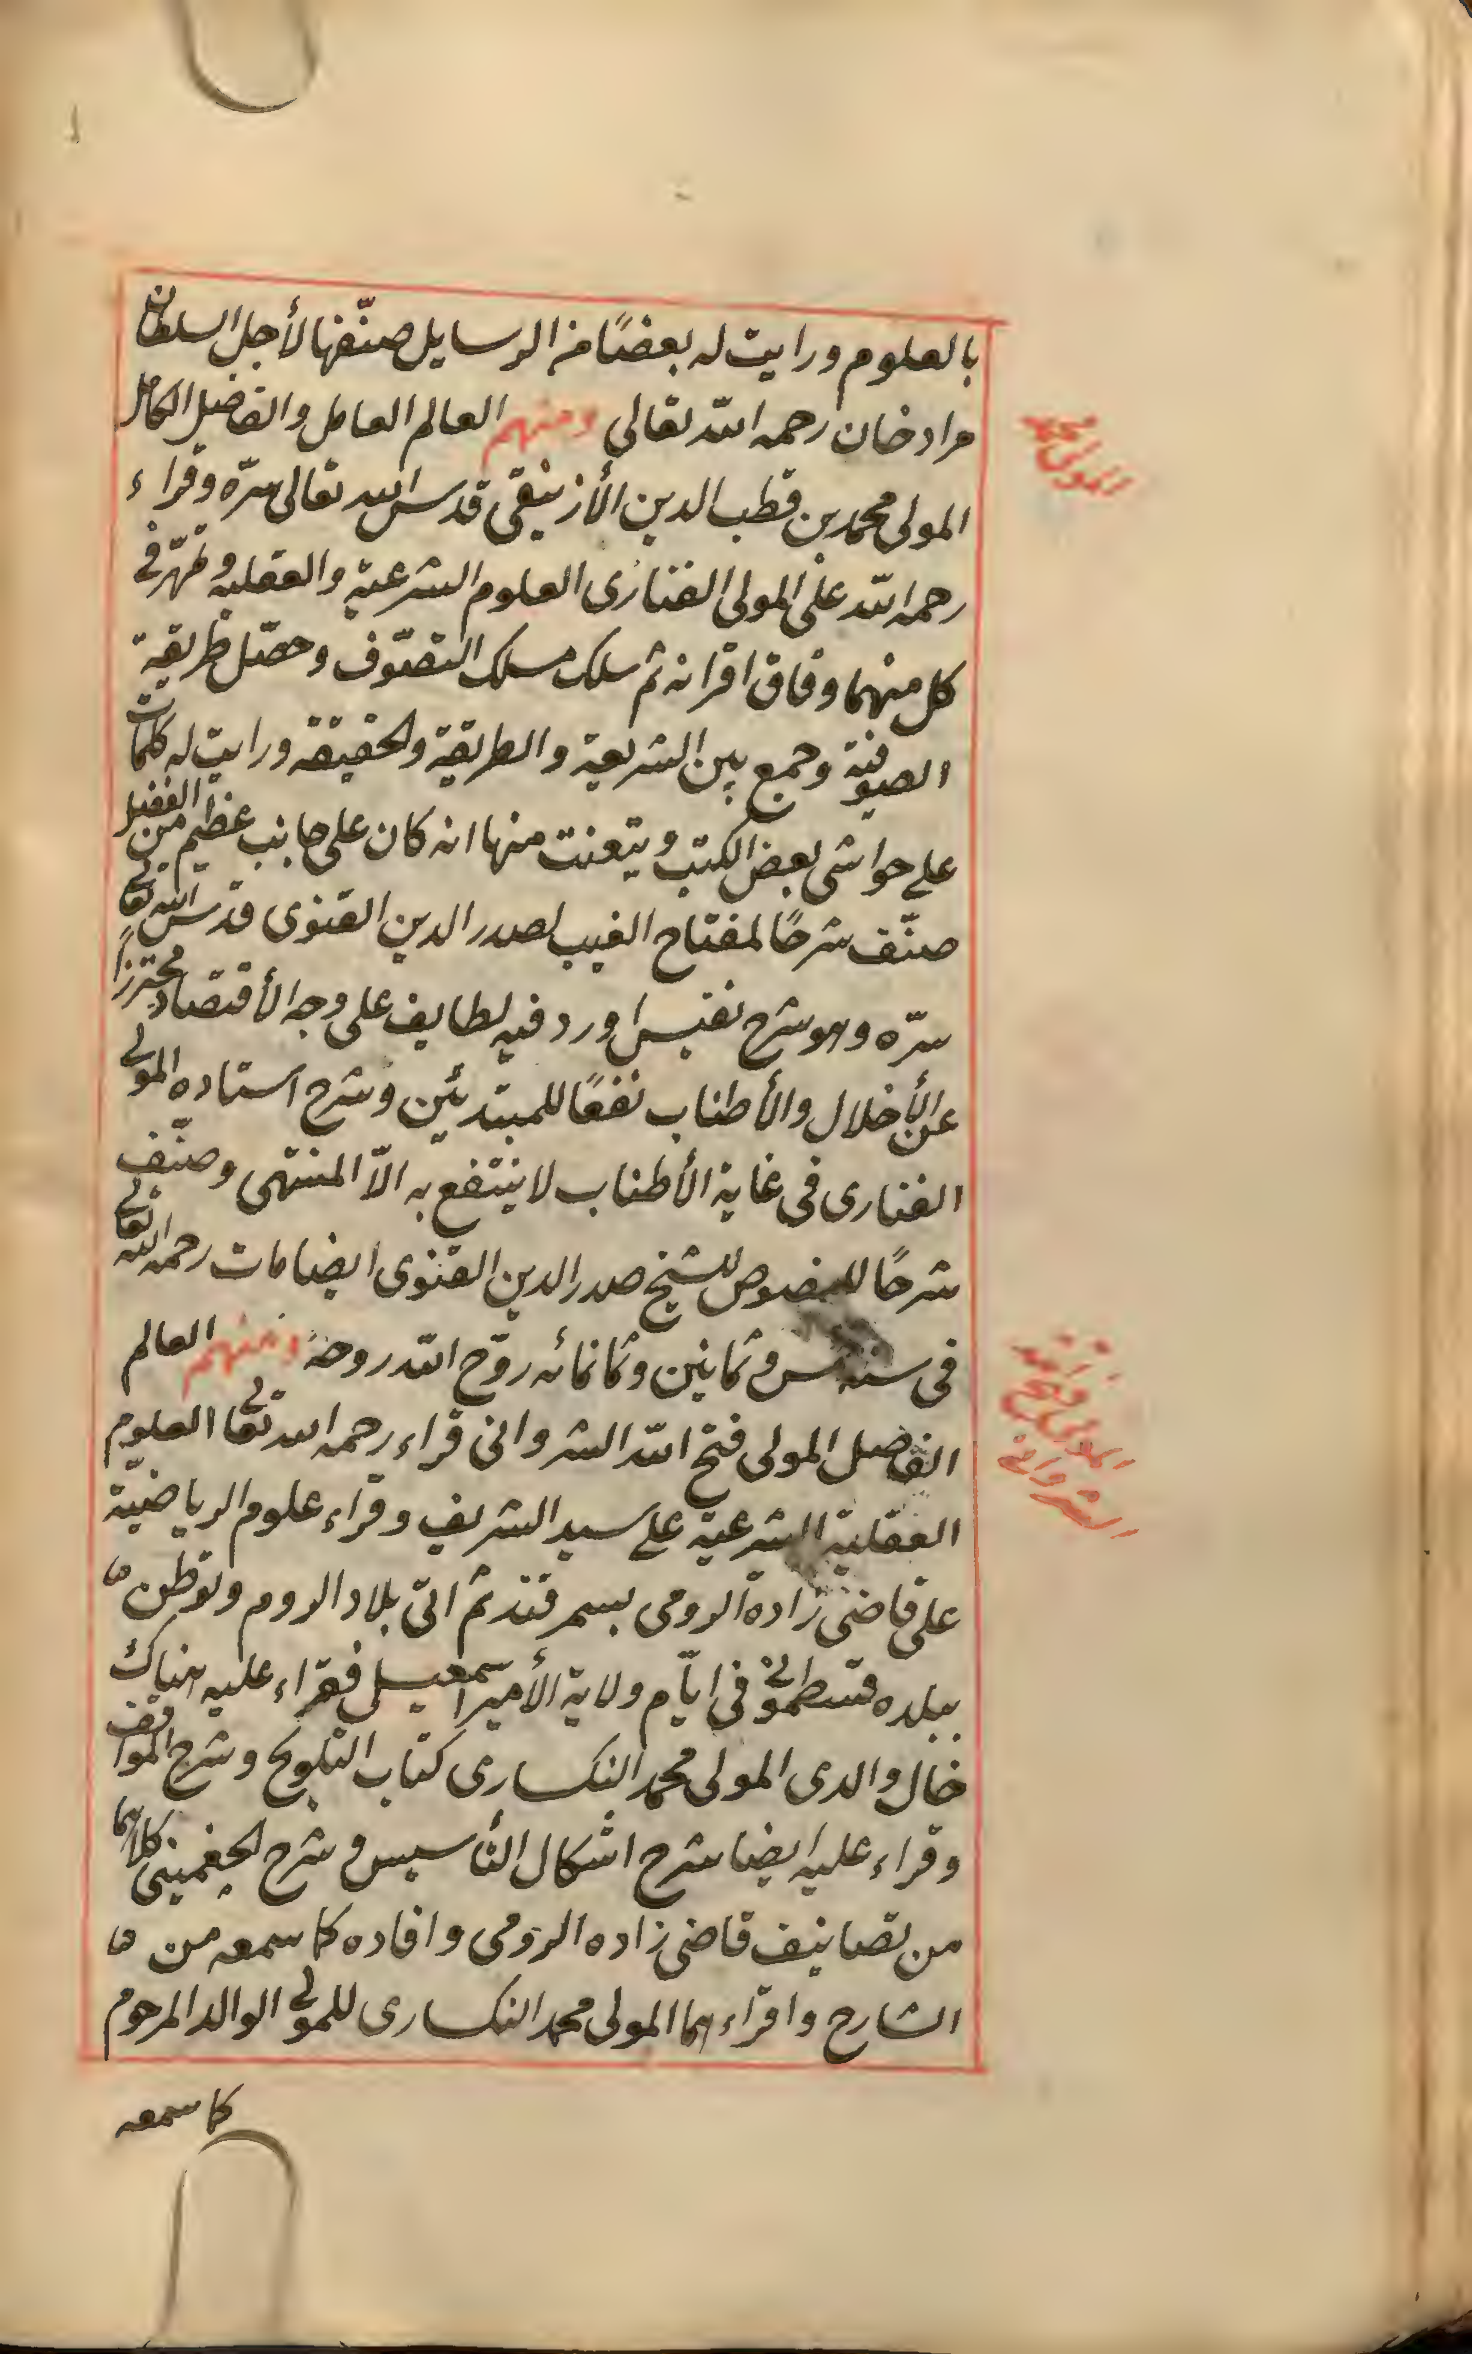 بالعلوم ورايت له بعضًا من الرسايل صنّفها لأجل السلطان
مراد خان رحمه الله تعالى ومنهم العالم العامل والفاضل الكامل
المولى محمد
المولى محمد بن قطب الدين الأزنيقى قدس الله تعالى سرّه وقراء
رحمه الله على المولى الفنارى العلوم الشرعية والعقليه وتمهّر فى
كل منهما وفاق اقرانه ثم سلك مسلك التصوّف وحصّل طريقية
الصوفية وجمع بين الشريعية والطريقية والحقيقه ورايت له كلمات
على حواشى بعض الكتب ويتعنت منها انه كان على جانب عظيم من الفضل
صنّف شرحًا لمفتاح الغيب لصدر الدين القنوى قدس الله تعالى
سرّه وهو شرح نفيس اورد فيه لطايف على وجه الأقتصاد محترزًا
عن الأخلال والأطناب نفعًا للمبتدئين وشرح استاده المولى
الفنارى فى غاية الأطناب لا ينتفع به الاّ المنتهى وصنّف
شرحًا للفصوص للشيخ صدر الدين القنوى ايضا مات رحمه الله تعالى
فى سنة خمس وثمانين وثمانمائه روّح الله روحه ومنهم العالم
المولى فتح الله
الشروانى
الفاضل المولى فتح الله الشروانى قراء رحمه الله تعالى العلوم
العقلية الشرعية على سيد الشريف وقراء علوم الرياضيّة
على قاضى زادة الرومى بسمرقند ثم اتى بلاد الروم وتوطن
ببلده قسطمونى فى ايّام ولاية الأمير اسمعيل فقراء عليه هناك
خال والدى المولى محمد النكسارى كتاب التلويح وشرح المواقف
وقراء عليه ايضا شرح اشكال التأسيس و شرح الجغمينى كلاهما
من تصانيف قاضى زاده الرومى وافاده كما سمعه من
الشارح واقراءهما المولى محمد النكسارى للمولى الوالد المرحوم
كما سمعه